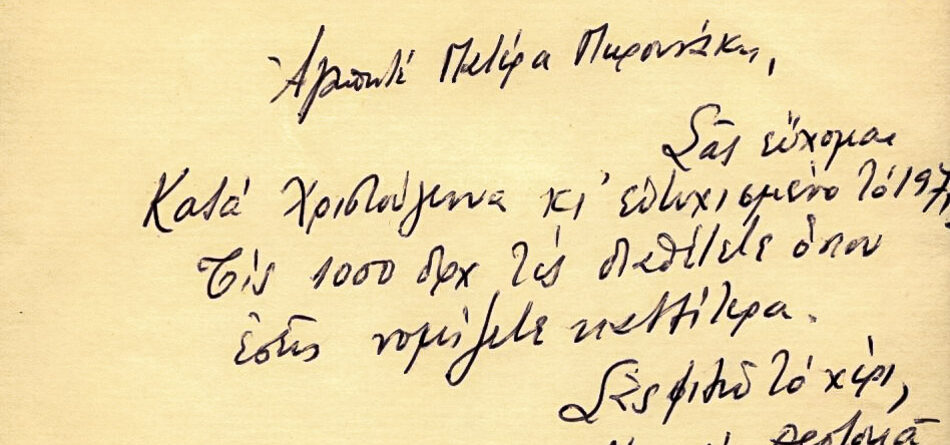 Ἀγαπητέ Πατέρα Μαρουνάκη,
Σᾶς εὔχομαι
Καλά Χριστούγεννα κι' εὐτυχισμένο τό 197
Τίς 1000 δρχ τίς διαθέτετε ὅπου
ἐσεῖς νομίζετε καλλίτερα.
Σᾶς φιλῶ τό χέρι,